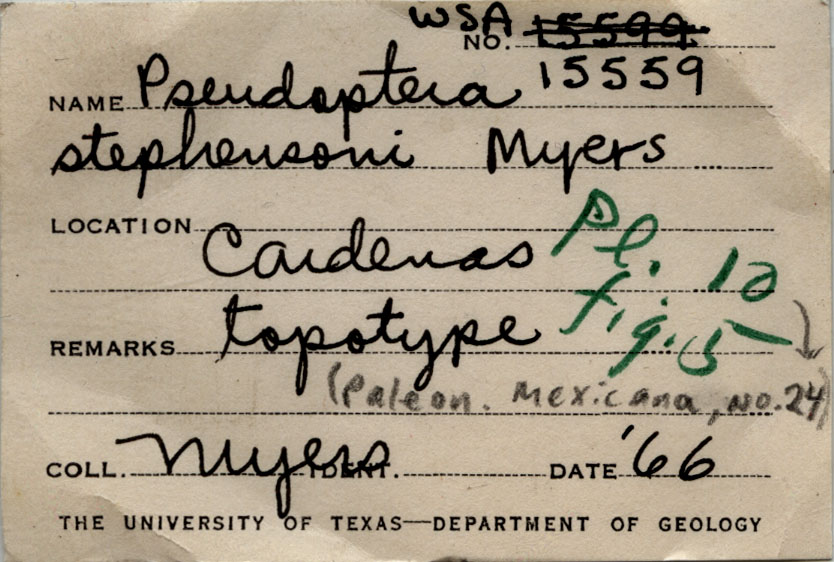 WSA
NO. 15599
15559
NAME Pseudoptera
stephensoni Myers
LOCATION
Cardenas Pl. 10
REMARKS topotype fig. 5
(Paleon. Mexicana, No. 24)
COLL. Myers IDENT. DATE '66
THE UNIVERSITY OF TEXAS—DEPARTMENT OF GEOLOGY